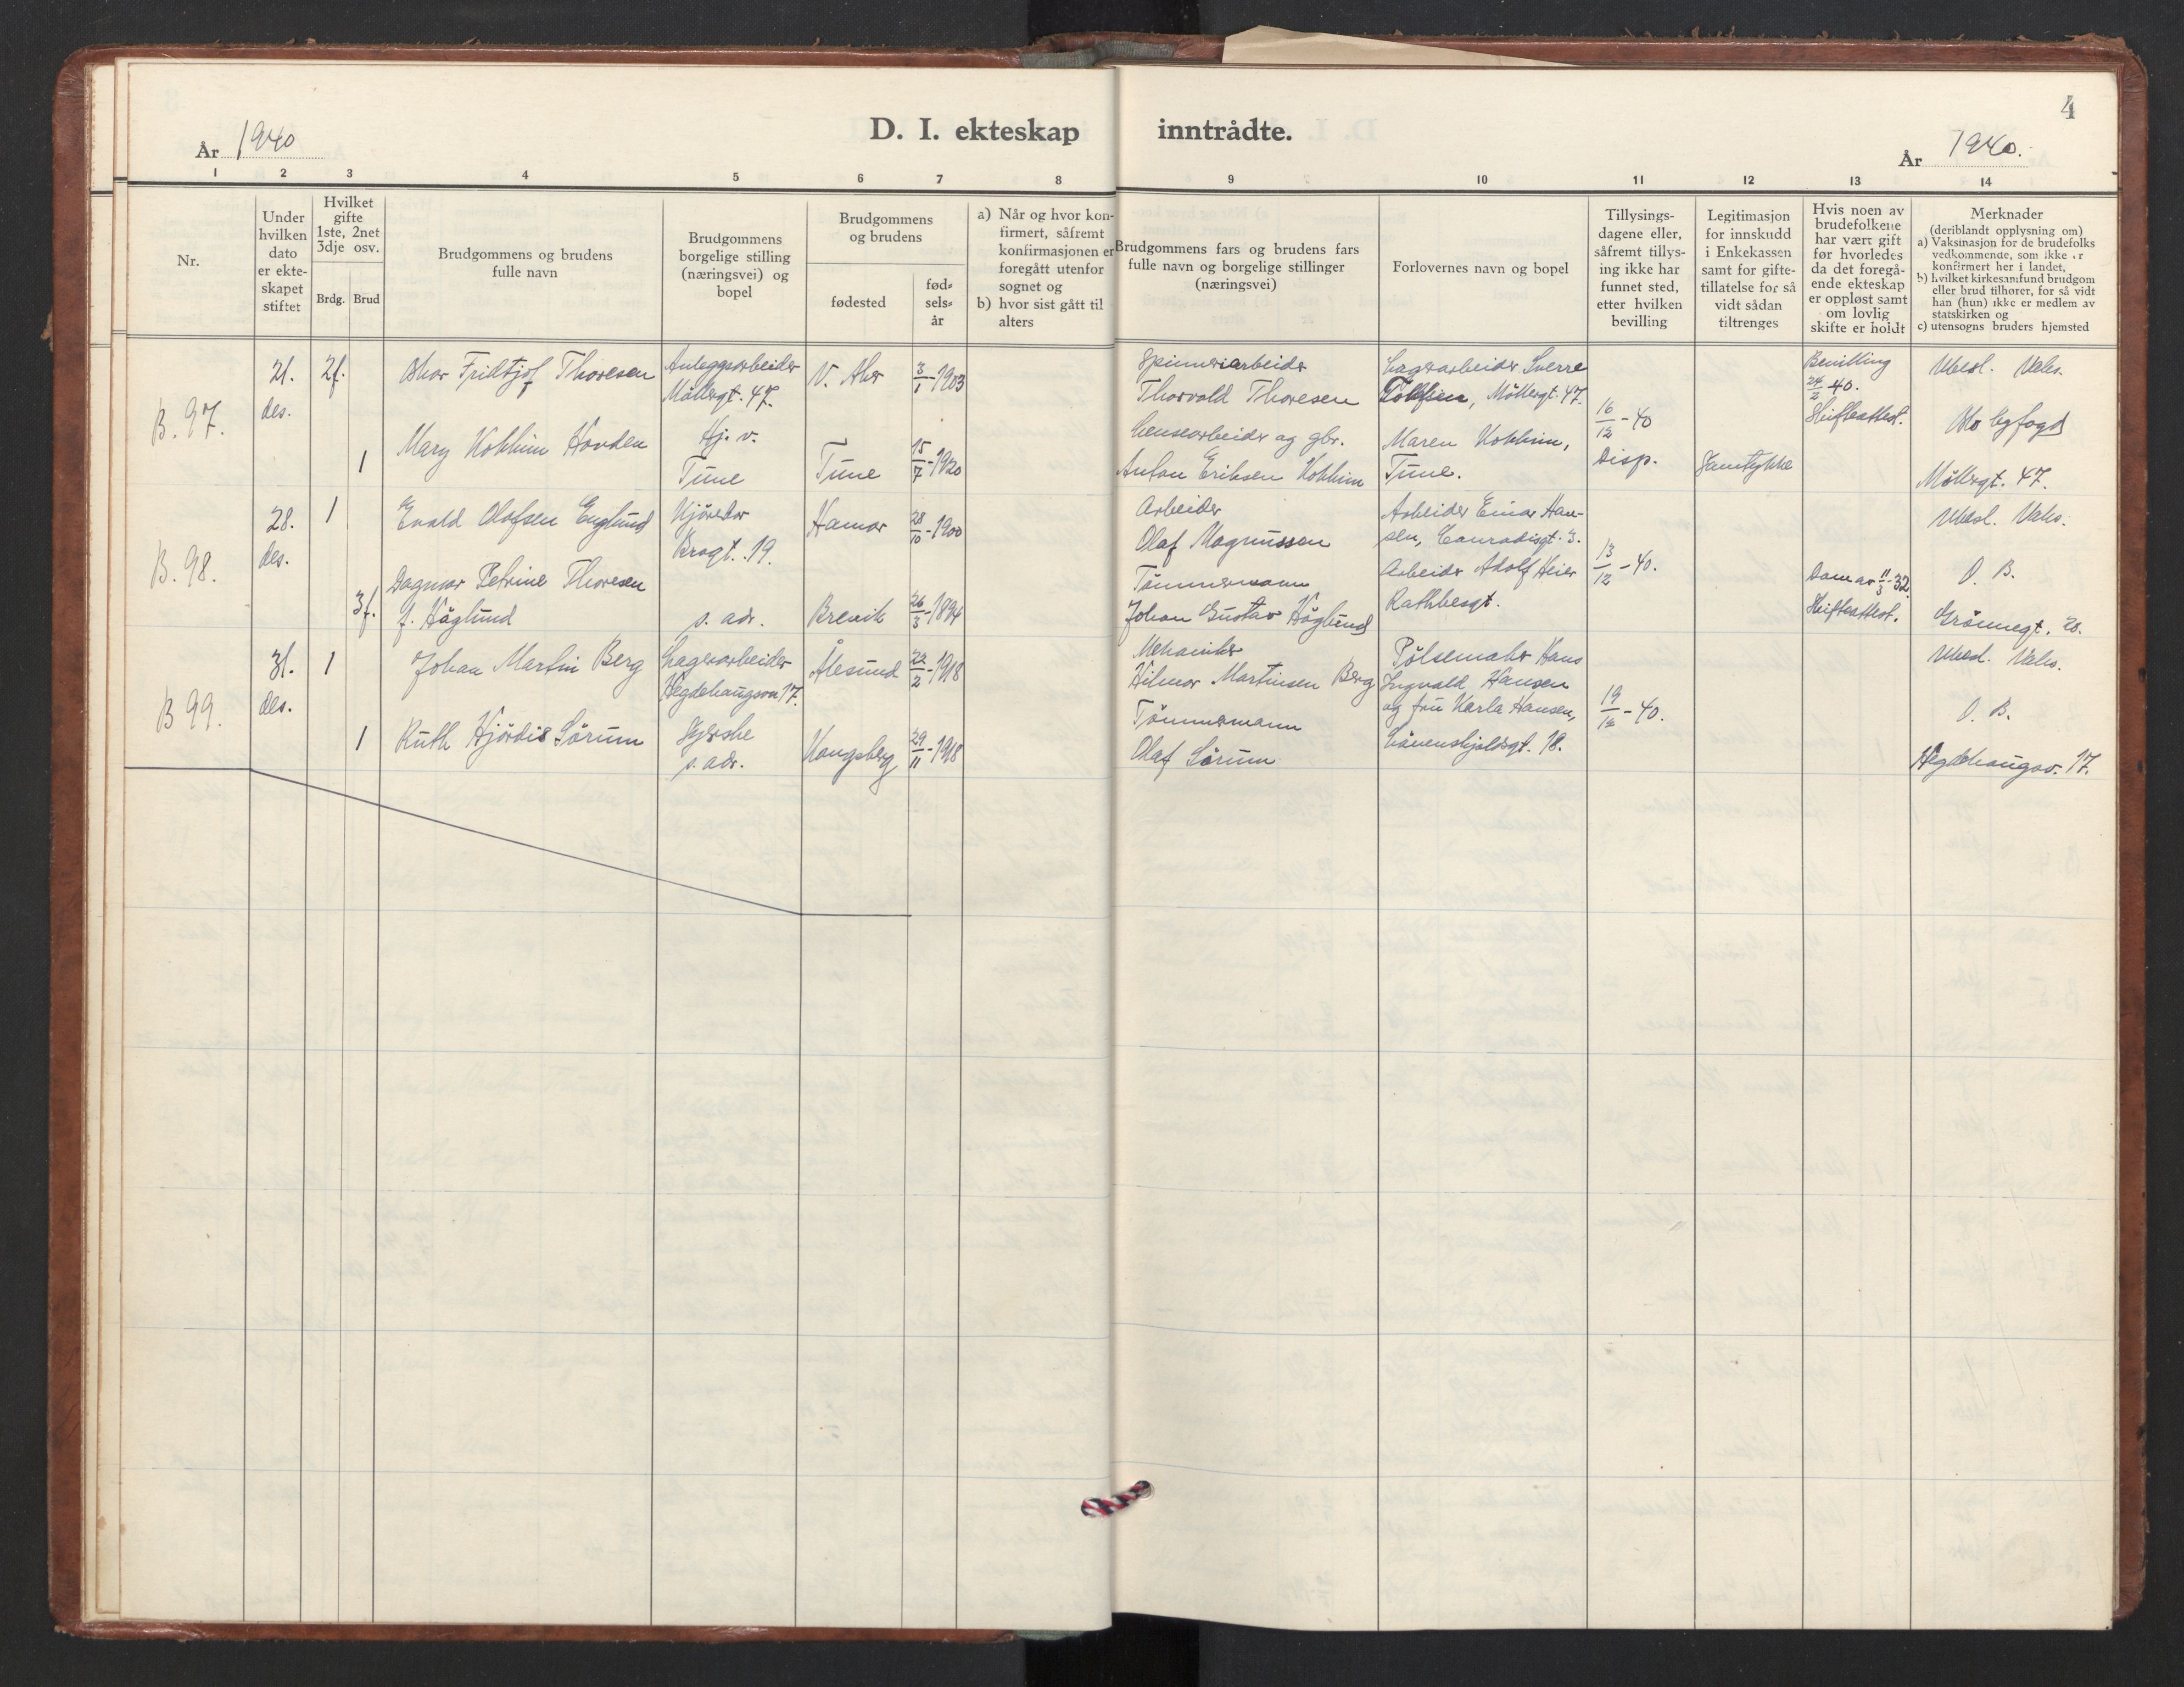 4
D. I. ekteskap inntrådte.
År 1940
År 1940.
1 2 3 4 5 6 7 8 9 10 11 12 13 14
Nr.
Under
hvilken
dato
er ekte-
skapet
stiftet
Hvilket
gifte
1ste, 2net
3dje osv.
Brdg. Brud
Brudgommens og brudens
fulle navn
Brudgommens
borgelige stilling
(næringsvei) og
bopel
Brudgommens
og brudens
fødested
fød-
sels-
år
a) Når og hvor kon-
firmert, såfremt
konfirmasjonen er
foregått utenfor
sognet og
b) hvor sist gått til
alters
Brudgommens fars og brudens fars
fulle navn og borgelige stillinger
(næringsvei)
Forlovernes navn og bopel
Tillysings-
dagene eller,
såfremt tillys-
ing ikke har
funnet sted,
etter hvilken
bevilling
Legitimasjon
for innskudd
i Enkekassen
samt for gifte-
tillatelse for så
vidt sådan
tiltrenges
Hvis noen av
brudefolkene
har vært gift
før hvorledes
da det foregå-
ende ekteskap
er oppløst samt
om lovlig
skifte er holdt
Merknader
(deriblandt opplysning om)
a) Vaksinasjon for de brudefolks
vedkommende, som ikke er
konfirmert her i landet,
b) hvilket kirkesamfund brudgom
eller brud tilhører, for så vidt
han (hun) ikke er medlem av
statskirken og
c) utensogns bruders hjemsted
B. 97.
21.
des.
2f.
Oskar Fridtjof Thoresen
Anleggsarbeider
Møllergt. 47.
V. Aker
3/1-1903
Spinneriarbeider
Thorvald Thoresen
Lagerarbeider Sverre
Tollefsen, Møllergt. 47.
16/12-40
Disp.
Bevilling
24/2 40.
Skifteattest.
Ubesl. Vaks.
Oslo byfogd
1
Mary Kokkim Hovden
Hj. v.
Tune
Tune
15/7-1920
Censearbeider og gbr.
Anton Eriksen Kokkim
Maren Kokkim,
Tune.
Samtykke
Møllergt. 47.
B. 98.
28.
des.
1
Evald Olofsen Englund
Kjøredar
Krogt. 19.
Hamar
28/10-1900
Arbeider
Olaf Magnusson
Arbeider Einar Han-
sen, Conradisgt. 3.
13/12-40.
Ubesl. Vaks.
O. B.
3f.
Dagmar Petrine Thoresen
f. Höglund
s. adr.
Brevik
26/3-1894
Tømmermann
Johan Gustav Höglund
Arbeider Adolf Heier
Rathkesgt.
Dom av 11/3-32.
Skifteattest.
Grønnegt. 20.
B 99.
31.
des.
1
Johan Martin Berg
Lagerarbeider
Hegdehaugsvn 17.
Ålesund
22/2-1918
Mekaniker
Hilmar Martinsen Berg
Pølsemaker Hans
Ingvald Hansen
og fru Karla Hansen,
Løvenskjoldsgt. 18.
19/12-40.
Ubesl. Vaks.
O. B.
1
Ruth Hjördis Sørum
Syerske
s. adr.
Kongsberg
29/11-1918
Tømmermann
Olaf Sørum
Hegdehaugsv. 17.